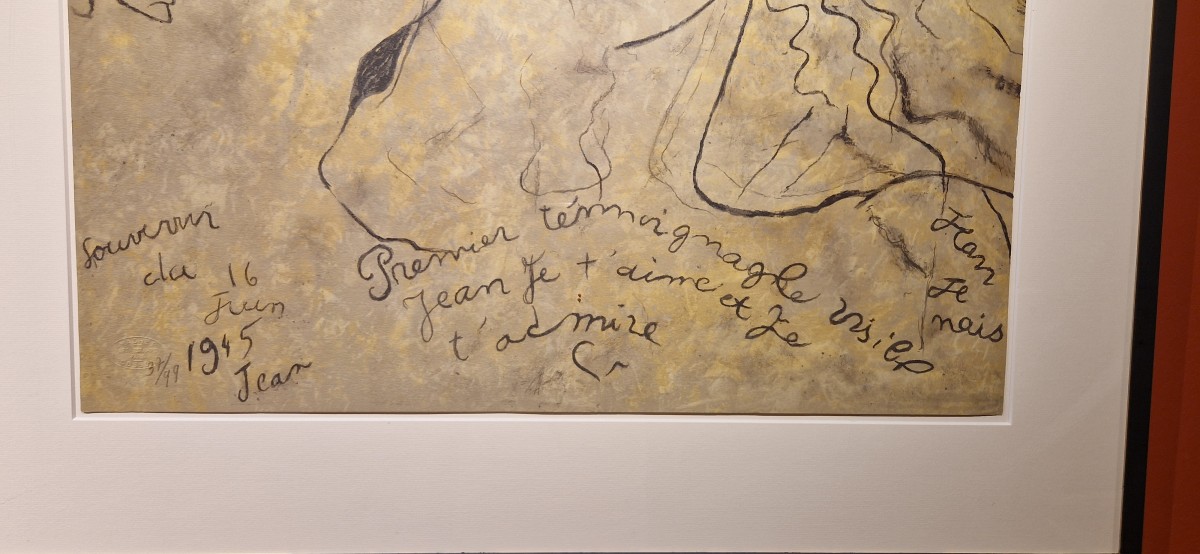 Souvenir
du 16
Juin
1945
Jean
37/99
Premier témoignagbe visible
Jean Je t'aime et Je
t'admire
Jean
Je
nais